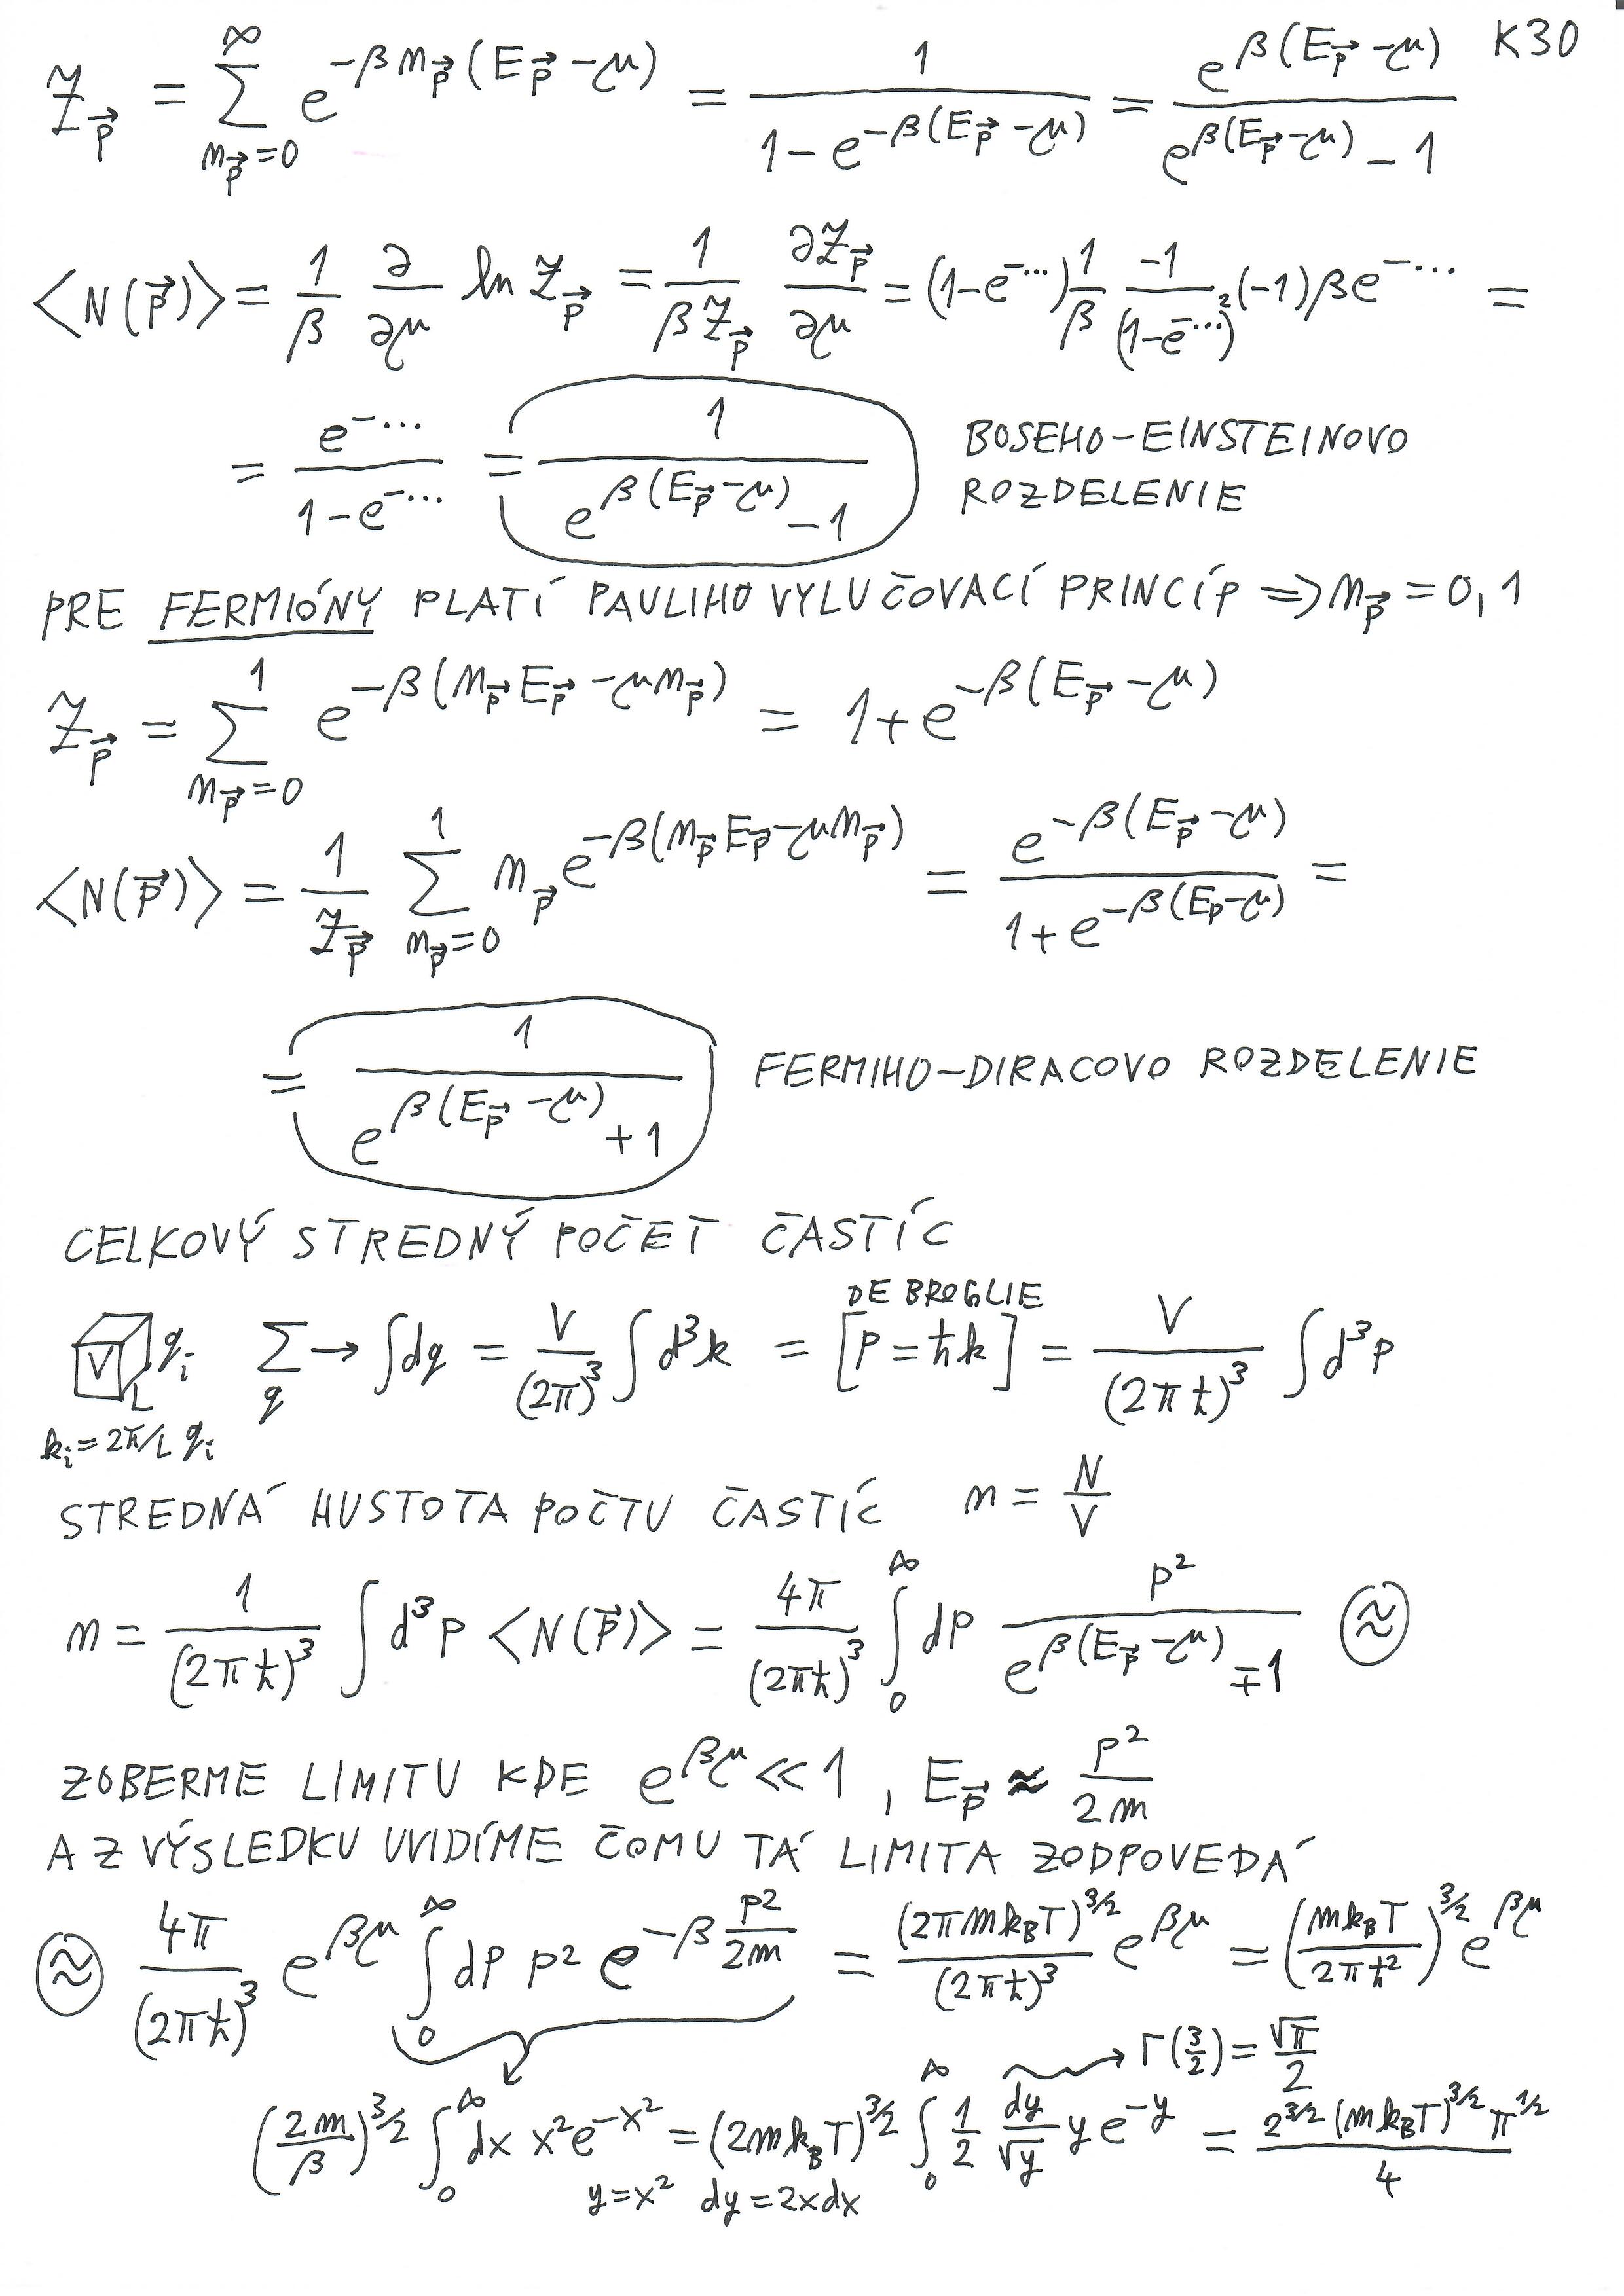 K30
$\tilde{Z}_{\vec{p}} = \sum_{n_{\vec{p}}=0}^{\infty} e^{-\beta n_{\vec{p}}(E_{\vec{p}}-\mu)} = \frac{1}{1-e^{-\beta(E_{\vec{p}}-\mu)}} = \frac{e^{\beta(E_{\vec{p}}-\mu)}}{e^{\beta(E_{\vec{p}}-\mu)}-1}$
$\langle N(\vec{p})\rangle = \frac{1}{\beta}\frac{\partial}{\partial\mu} \ln \tilde{Z}_{\vec{p}} = \frac{1}{\beta\tilde{Z}_{\vec{p}}}\frac{\partial\tilde{Z}_{\vec{p}}}{\partial\mu} = (1-e^{-\dots})\frac{1}{\beta}\frac{-1}{(1-e^{-\dots})^2}(-1)\beta e^{-\dots} =$
$= \frac{e^{-\dots}}{1-e^{-\dots}} = \frac{1}{e^{\beta(E_{\vec{p}}-\mu)}-1}$ BOSEHO-EINSTEINOVO
ROZDELENIE
PRE FERMIÓNY PLATÍ PAULIHO VYLUČOVACÍ PRINCÍP $\Rightarrow n_{\vec{p}} = 0,1$
$\tilde{Z}_{\vec{p}} = \sum_{n_{\vec{p}}=0}^{1} e^{-\beta(n_{\vec{p}}E_{\vec{p}}-\mu n_{\vec{p}})} = 1+e^{-\beta(E_{\vec{p}}-\mu)}$
$\langle N(\vec{p})\rangle = \frac{1}{\tilde{Z}_{\vec{p}}}\sum_{n_{\vec{p}}=0}^{1} n_{\vec{p}} e^{-\beta(n_{\vec{p}}E_{\vec{p}}-\mu n_{\vec{p}})} = \frac{e^{-\beta(E_{\vec{p}}-\mu)}}{1+e^{-\beta(E_p-\mu)}} =$
$= \frac{1}{e^{\beta(E_{\vec{p}}-\mu)}+1}$ FERMIHO-DIRACOVO ROZDELENIE
CELKOVÝ STREDNÝ POČET ČASTÍC
DE BROGLIE
V L $q_i$ $\sum_q \rightarrow \int dq = \frac{V}{(2\pi)^3}\int d^3k = [p=\hbar k] = \frac{V}{(2\pi\hbar)^3}\int d^3p$
$k_i = 2\pi/L\ q_i$
STREDNÁ HUSTOTA POČTU ČASTÍC $n = \frac{N}{V}$
$n = \frac{1}{(2\pi\hbar)^3}\int d^3p \langle N(\vec{p})\rangle = \frac{4\pi}{(2\pi\hbar)^3}\int_0^\infty dp \frac{p^2}{e^{\beta(E_{\vec{p}}-\mu)}\mp 1} \approx$
ZOBERME LIMITU KDE $e^{\beta\mu} \ll 1$, $E_{\vec{p}} \approx \frac{p^2}{2m}$
A Z VÝSLEDKU UVIDÍME ČOMU TÁ LIMITA ZODPOVEDÁ
$\approx \frac{4\pi}{(2\pi\hbar)^3} e^{\beta\mu}\int_0^\infty dp\ p^2 e^{-\beta\frac{p^2}{2m}} = \frac{(2\pi mk_BT)^{3/2}}{(2\pi\hbar)^3}e^{\beta\mu} = \left(\frac{mk_BT}{2\pi\hbar^2}\right)^{3/2}e^{\beta\mu}$
$\rightarrow \Gamma(\frac{3}{2}) = \frac{\sqrt{\pi}}{2}$
$\left(\frac{2m}{\beta}\right)^{3/2}\int_0^\infty dx\ x^2e^{-x^2} = (2mk_BT)^{3/2}\int_0^\infty \frac{1}{2}\frac{dy}{\sqrt{y}}ye^{-y} = \frac{2^{3/2}(mk_BT)^{3/2}\pi^{1/2}}{4}$
$y=x^2$ $dy=2xdx$